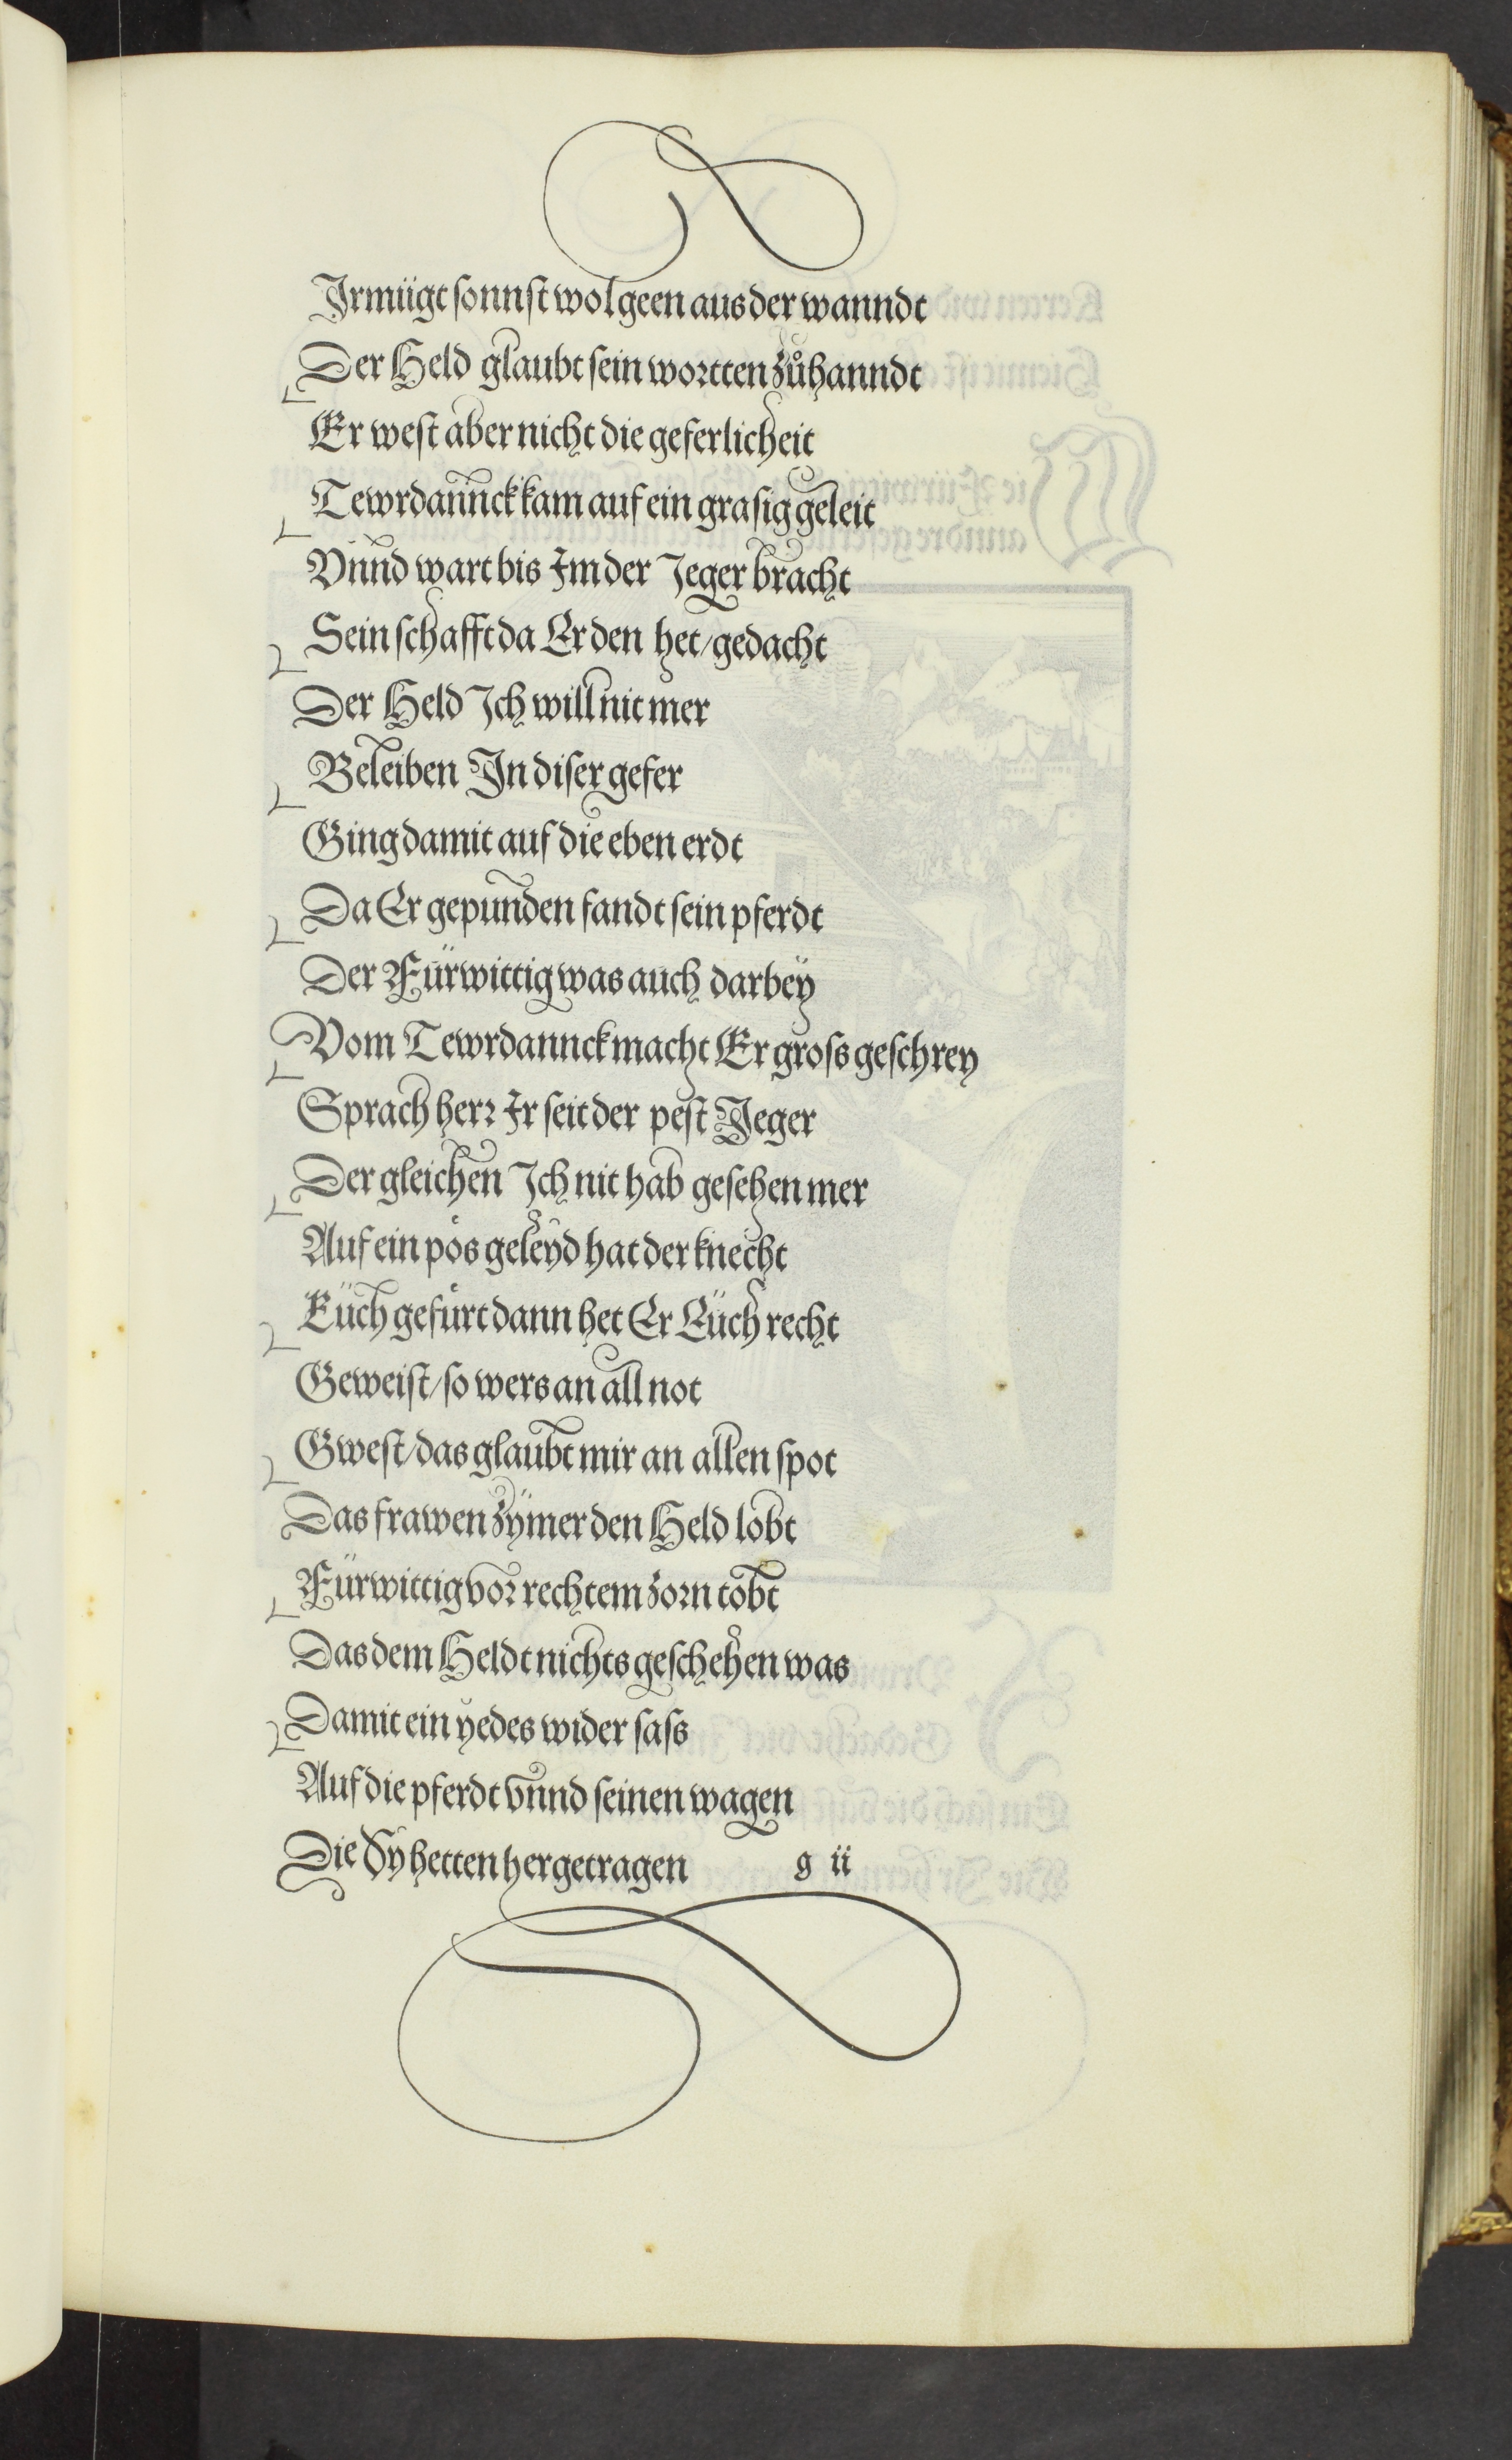 Ir mügt sonnst wol geen aus der wanndt
Der Held glaubt sein wortten zůhanndt
Er west aber nicht die geferlicheit
Tewrdannck kam auf ein grasig geleit
Vnnd wart bis Im der Jeger bracht
Sein schafft da Er den het/gedacht
Der Held Ich will nit mer
Beleiben In diser gefer
Ging damit auf die eben erdt
Da Er gepunden fandt sein pferdt
Der Fürwittig was auch darbeÿ
Vom Tewrdannck macht Er gross geschrey
Sprach herr Ir seit der pest Jeger
Der gleichen Ich nit hab gesehen mer
Auf ein pos geleyd hat der knecht
Eüch gefürt dann het Er Eüch recht
Geweist/so wers an all not
Gwest/das glaubt mir an allen spot
Das frawen zÿmer den Held lobt
Fürwittig vor rechtem zorn tobt
Das dem Heldt nichts geschehen was
Damit ein yedes wider sass
Auf die pferdt vnnd seinen wagen
Die Sÿ hetten hergetragen g ii